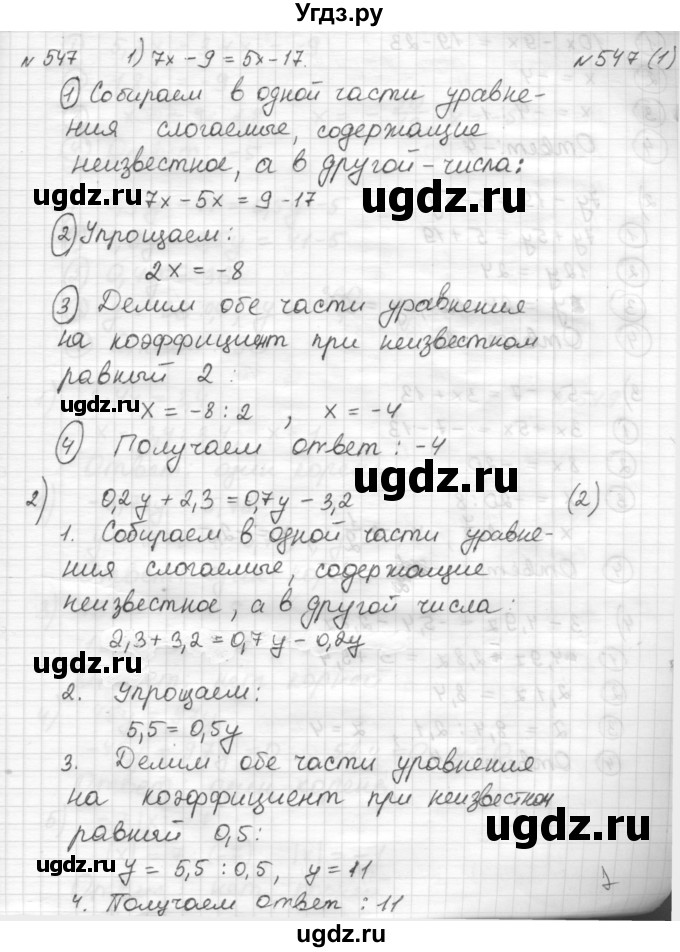 Угдз.ру
№547 1) 7x - 9 = 5x - 17. №547 (1)
① Собираем в одной части уравне-
ния слогаемые, содержащие
неизвестное, а в другой - числа:
ugdz.ru 7x - 5x = 9 - 17 ugdz.ru
② Упрощаем:
2x = -8
③ Делим обе части уравнения
на коэффициент при неизвестном
равный 2:
ugdz.ru x = -8 : 2 , x = -4
④ Получаем ответ : -4 ugdz.ru
2) 0,2y + 2,3 = 0,7y - 3,2 (2)
1. Собираем в одной части уравне-
ния слогаемые, содержащие
неизвестное, а в другой числа:
2,3 + 3,2 = 0,7y - 0,2y
2. Упрощаем:
5,5 = 0,5y
3. Делим обе части уравнения
на коэффициент при неизвестном
равный 0,5: ugdz.ru
ugdz.ru y = 5,5 : 0,5, y = 11
4. Получаем ответ : 11
ugdz.ru